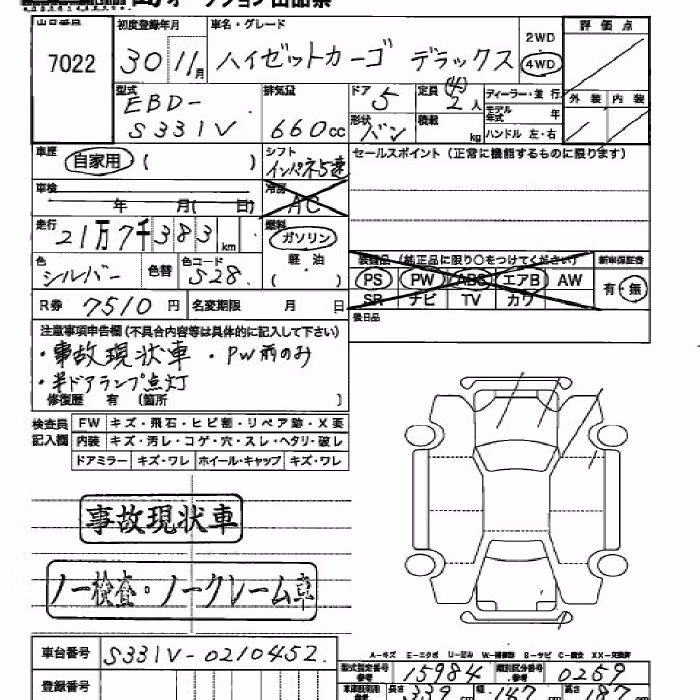 オークション出品票
出品番号 初度登録年月 車名・グレード 2WD 評価点
7022 30 11月 ハイゼットカーゴ デラックス 4WD
型式 排気量 ドア 定員 (4) ディーラー・並行 外装 内装
EBD- 5 2人 モデル年式 年
S331V 660cc 形状 バン 積載 kg ハンドル 左・右
車歴 自家用 ( ) シフト インパネ5速 セールスポイント(正常に機能するものに限ります)
車検 年 月( 日) 冷房 AC
走行 21万7千383km 燃料 ガソリン
軽油
( )
装備品(純正品に限り○をつけてください) 新車保証書
色 シルバー 色替 色コード S28
PS PW ABS エアB AW 有・無
SR ナビ TV カワ
R券 7510円 名変期限 月 日 後日品
注意事項申告欄(不具合内容等は具体的に記入して下さい)
・事故現状車 ・PW前のみ
・半ドアランプ点灯
修復歴 有 (箇所 )
検査員記入欄 FW キズ・飛石・ヒビ割・リペア跡・X要
内装 キズ・汚レ・コゲ・穴・スレ・ヘタリ・破レ
ドアミラー キズ・ワレ ホイール・キャップ キズ・ワレ
事故現状車
ノー検査・ノークレーム車
A-キズ E-エクボ U-凹み W-補修跡 S-サビ C-腐食 XX-交換済
車台番号 S331V-0210452. 型式指定番号 参考 15984 類別区分番号 参考 0259
登録番号 車検証利用 参考 長さ 339cm 幅 147cm 高さ 187cm